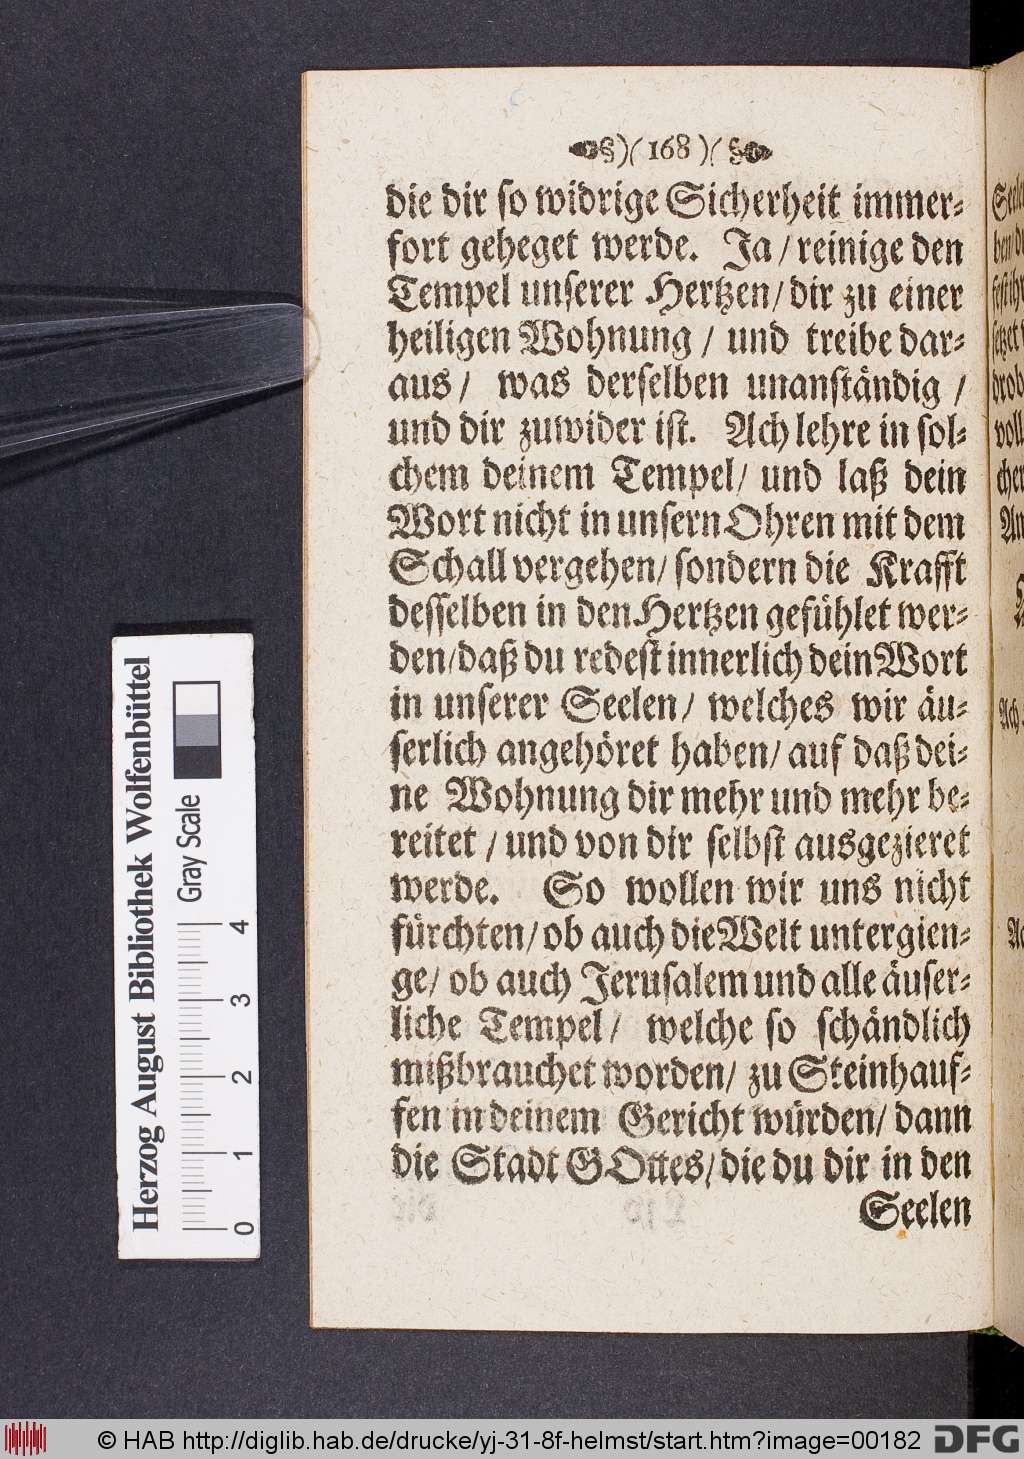 §)(168)(§
die dir so widrige Sicherheit immer⸗
fort geheget werde. Ja/reinige den
Tempel unserer Hertzen/dir zu einer
heiligen Wohnung / und treibe dar⸗
aus/ was derselben unanständig /
und dir zuwider ist. Ach lehre in sol⸗
chem deinem Tempel/ und laß dein
Wort nicht in unsern Ohren mit dem
Schall vergehen/ sondern die Krafft
desselben in den Hertzen gefühlet wer⸗
den/daß du redest innerlich dein Wort
in unserer Seelen/ welches wir äu⸗
serlich angehöret haben/ auf daß dei⸗
ne Wohnung dir mehr und mehr be⸗
reitet / und von dir selbst ausgezieret
werde. So wollen wir uns nicht
fürchten/ob auch die Welt untergien⸗
ge/ ob auch Jerusalem und alle äuser⸗
liche Tempel/ welche so schändlich
mißbrauchet worden/ zu Steinhauf⸗
fen in deinem Gericht würden/ dann
die Stadt GOttes/die du dir in den
Seelen
Herzog August Bibliothek Wolfenbüttel
Gray Scale
0 1 2 3 4
© HAB http://diglib.hab.de/drucke/yj-31-8f-helmst/start.htm?image=00182
DFG